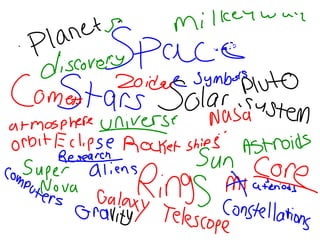 Planets
milkeyway
Space
discovery
Zoidcae Symbols
Comet
Stars
Solar
Pluto
System
Nasa
atmosphere
universe
orbit
Eclipse
Rocket ships
Astroids
Research
Sun
Core
Super
Nova
aliens
Rings
computers
Galaxy
Gravity
Telescope
Constellations